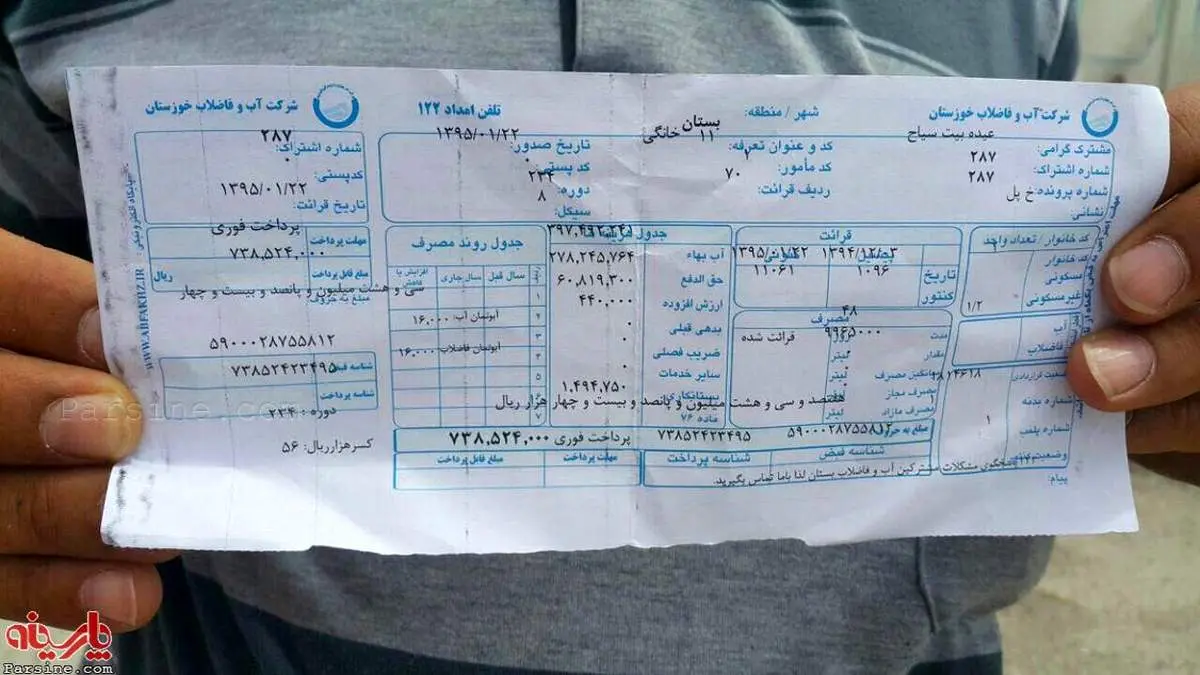 شرکت آب و فاضلاب خوزستان
شهر / منطقه: بستان
تلفن امداد ۱۲۲
مشترک گرامی: عبده بیت سیاح
شماره اشتراک: ۲۸۷
شماره پرونده: ۲۸۷
نشانی: خ پل
کد و عنوان تعرفه: ۱۱ خانگی
کد مأمور: ۲
ردیف قرائت: ۷۰
تاریخ صدور: ۱۳۹۵/۰۱/۲۲
کد پستی: ۰
دوره: ۲۳۴
سیکل: ۸
کد خانوار / تعداد واحد
کد خانوار
مسکونی
غیرمسکونی
۱/۲
آب
فاضلاب
شماره بدنه
شماره پلمب
۱
پیام:
قرائت
تاریخ
کنتور
۱۰۹۶
۱۱۰۶۱
مصرف
مدت ۴۸ روزه
مقدار ۹۹۶۵۰۰۰ لیتر قرائت شده
میانگین مصرف ۰ لیتر
مصرف مجاز ۰ لیتر
مصرف مازاد لیتر
جدول هزینه ها
آب بهاء ۲۷۸,۲۴۵,۷۶۴
حق الدفع ۶۰,۸۱۹,۳۰۰
ارزش افزوده ۴۴۰,۰۰۰
بدهی قبلی ۰
ضریب فصلی ۰
سایر خدمات
بستانکاری ۱,۴۹۴,۷۵۰
ماده ۷۶
جدول روند مصرف
ردیف
سال قبل
سال جاری
افزایش یا کاهش
۱
۲
۳
۴
۵
۷
آبونمان آب: ۱۶,۰۰۰
آبونمان فاضلاب: ۱۶,۰۰۰
هفتصد و سی و هشت میلیون و پانصد و بیست و چهار هزار ریال
مبلغ به حروف
۵۹۰۰۰۲۸۷۵۵۸۱۲
۷۳۸۵۲۴۲۳۴۹۵
پرداخت فوری ۷۳۸,۵۲۴,۰۰۰
شناسه قبض
شناسه پرداخت
مهلت پرداخت
مبلغ قابل پرداخت
پاسخگوی مشکلات مشترکین آب و فاضلاب بستان لذا باما تماس بگیرید.
شرکت آب و فاضلاب خوزستان
شماره اشتراک: ۲۸۷
کدپستی: ۰
تاریخ قرائت: ۱۳۹۵/۰۱/۲۲
مهلت پرداخت پرداخت فوری
مبلغ قابل پرداخت ۷۳۸,۵۲۴,۰۰۰ ریال
مبلغ به حروف
سی و هشت میلیون و پانصد و بیست و چهار
۵۹۰۰۰۲۸۷۵۵۸۱۲
شناسه قبض
۷۳۸۵۲۴۲۳۴۹۵
شناسه پرداخت
دوره : ۲۳۴
کسرهزارریال: ۵۶
WWW.ABFAKHZ.IR
Parsine.com
پارسینه
Parsine.com